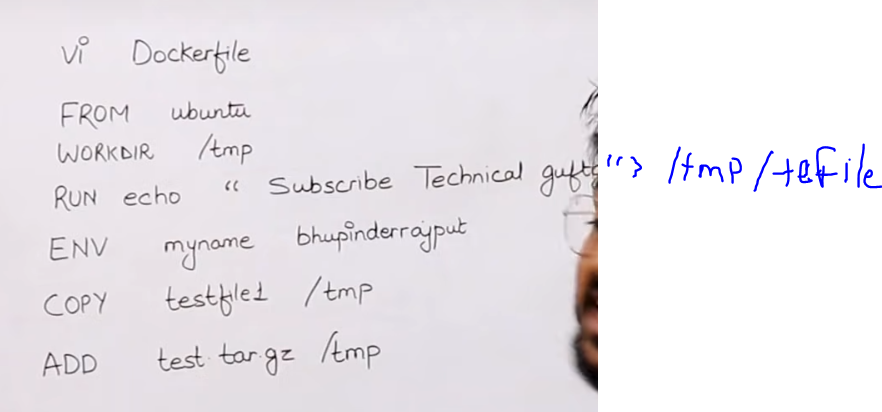 vi Dockerfile
FROM ubuntu
WORKDIR /tmp
RUN echo “ Subscribe Technical gufta "> /tmp/tefile
ENV myname bhupinderrajput
COPY testfile1 /tmp
ADD test.tar.gz /tmp